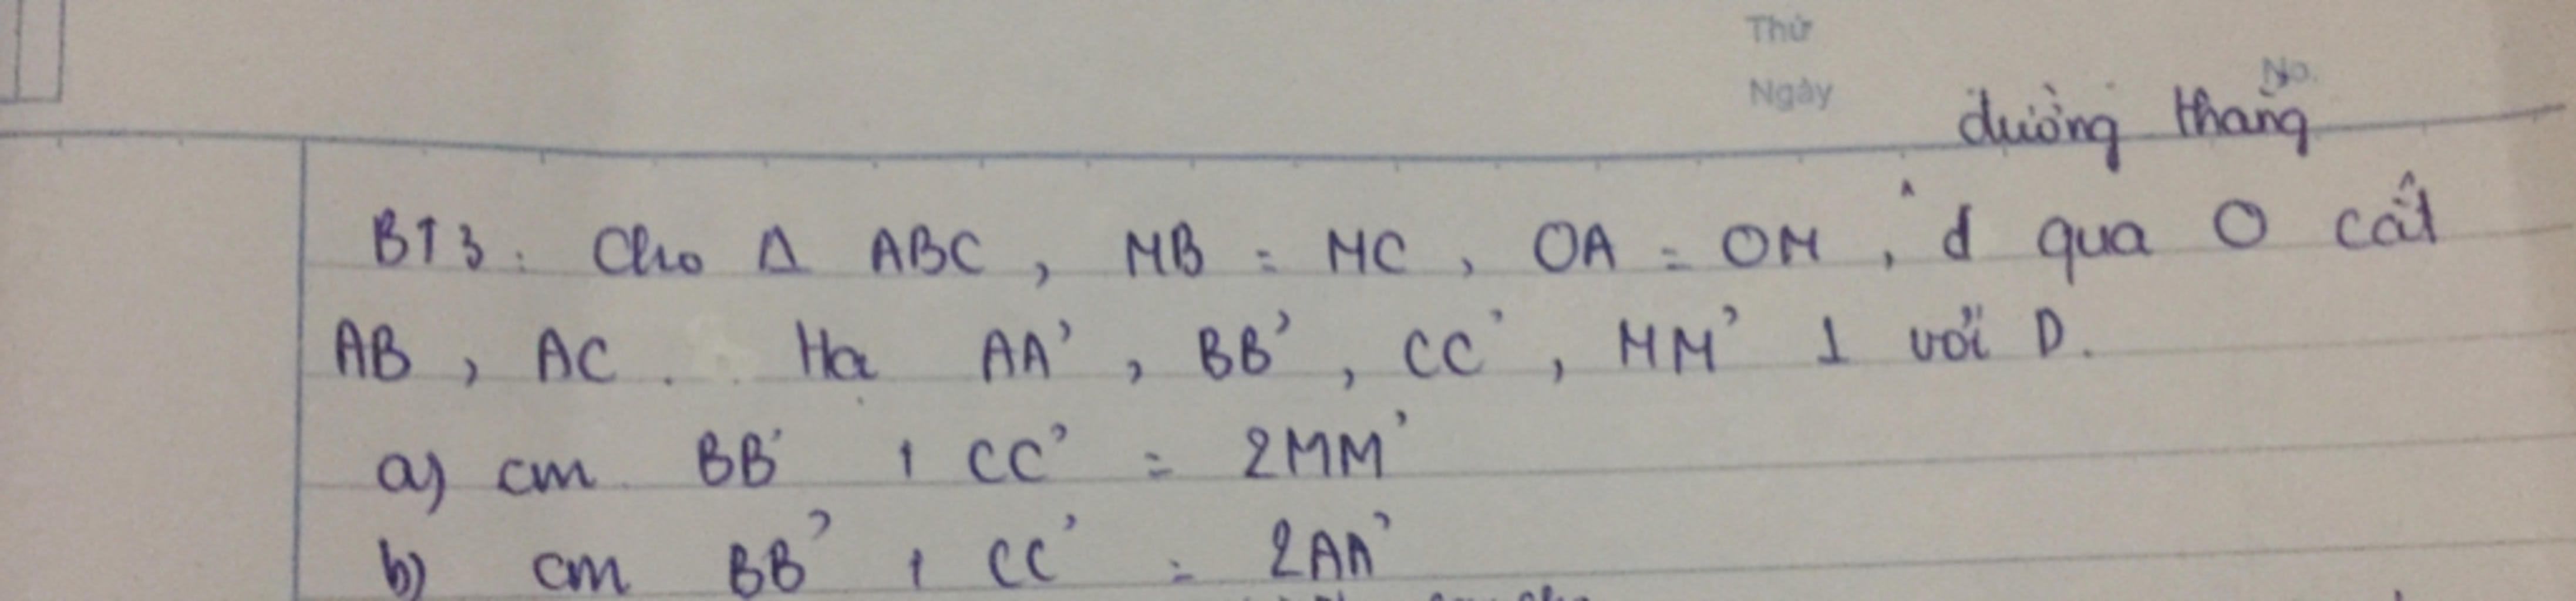 Thứ
No.
Ngày
đường thẳng
BT3: Cho Δ ABC, MB = MC, OA = OM, d qua O cắt
AB, AC. Hạ AA', BB', CC', MM' ⊥ với D.
a) cm BB' + CC' = 2MM'
b) cm BB' + CC' = 2AA'